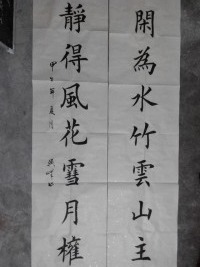 閑為水竹雲山主
靜得風花雪月權
甲午年夏月